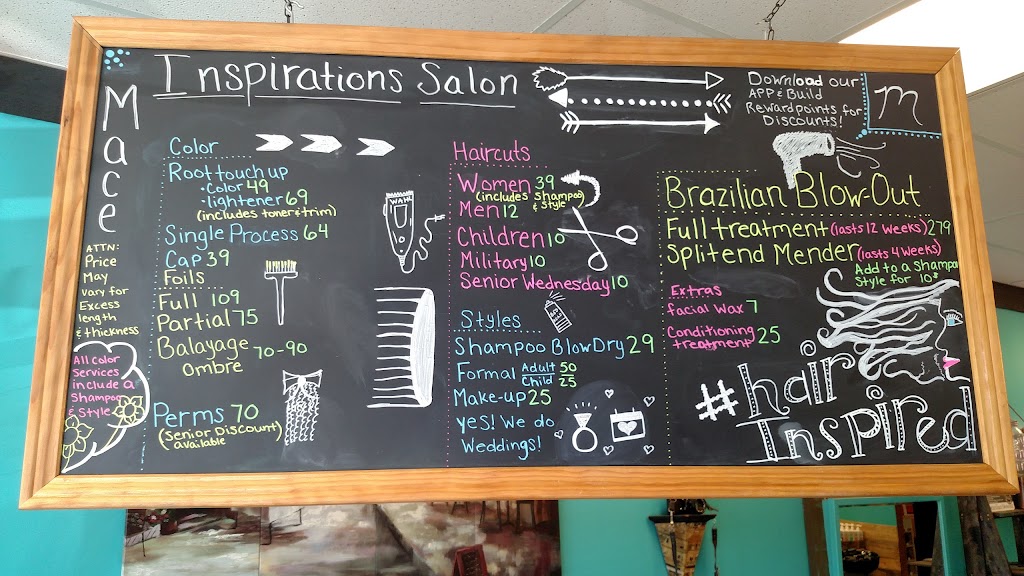 Mace
Inspirations Salon
Download our
APP & Build
Reward points for
Discounts!
m
ATTN:
Price
May
vary for
Excess
length
& thickness
All color
Services
include a
Shampoo
& Style
Color
Root touch up
-Color 49
-lightener 69
(includes toner & trim)
Single Process 64
Cap 39
Foils
Full 109
Partial 75
Balayage 70-90
Ombre
Perms 70
(Senior Discount)
available
WAHL
Haircuts
Women 39
(includes Shampoo
& Style)
Men 12
Children 10
Military 10
Senior Wednesday 10
Styles
Shampoo BlowDry 29
Formal Adult 50
Child 25
Make-up 25
yes! We do
Weddings!
Brazilian Blow-Out
Full treatment (lasts 12 weeks) 279
Splitend Mender (lasts 4 weeks)
Add to a Shampoo
Style for 10
Extras
facial Wax 7
Conditioning
treatment 25
#hair
Inspired